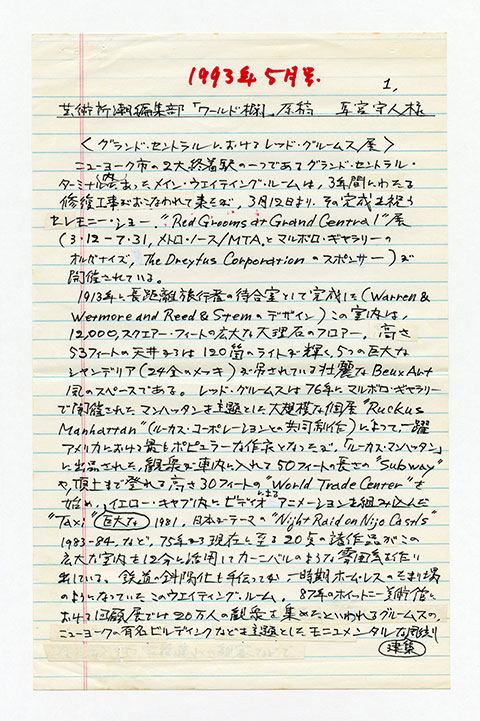 1993年5月号.
1.
芸術新潮編集部「ワールド欄」原稿 守人様
〈グランド・セントラルにおけるレッド・グルームス展〉
ニューヨーク市の2大終着駅の一つであるグランド・セントラル・
ターミナル内にあったメイン・ウエイティング・ルームは, 3年間にわたる
修復工事がおこなわれて来たが, 3月12日より, その完成を祝う
セレモニー・ショー, "Red Grooms at Grand Central"展
(3・12-7・31, メトロ・ノース/MTA, とマルボロ・ギャラリーの
オルガナイズ, The Dreyfus Corporation のスポンサー)が
開催されている。
1913年に長距離旅行者の待合室として完成した(Warren &
Wetmore and Reed & Stem のデザイン)この室内は,
12,000, スクエアー・フィートの広大な大理石のフロアー, 高さ
53フィートの天井からは120箇のライトが輝く, 5つの巨大な
シャンデリア(24金のメッキ)が吊されている壮麗な Beux Art
風のスペースである。レッド・グルームスは76年にマルボロ・ギャラリー
で開催されたマンハッタンを主題とした大規模な個展"Ruckus
Manhattan"(ルーカス・コーポレーションとの共同制作)によって一躍
アメリカにおける最もポピュラーな作家となったが,「ルーカス・マンハッタン」
に出品された, 観衆が車内に入れる50フィートの長さの"Subway"
や, 頂上まで登れる高さ30フィートの"World Trade Center"を
始め, イエロー・キャブ内にビデオによるアニメーションを組み込んだ
"Taxi" 巨大な 1981, 日本がテーマの"Night Raid on Nijo Castle"
1983-84, など, 75年から現在に至る20点の諸作品がこの
広大な室内を12分に活用してカーニバルのような雰囲気を作り
出している。鉄道の斜陽化も手伝ってか, 一時期ホームレスのたまり場
のようになっていたこのウエイティング・ルーム, 87年のホイットニー美術館に
おける回顧展では20万人の観衆を集めたといわれるグルームスの,
ニューヨークの有名ビルディングなどを主題としたモニュメンタルな彫刻
建築